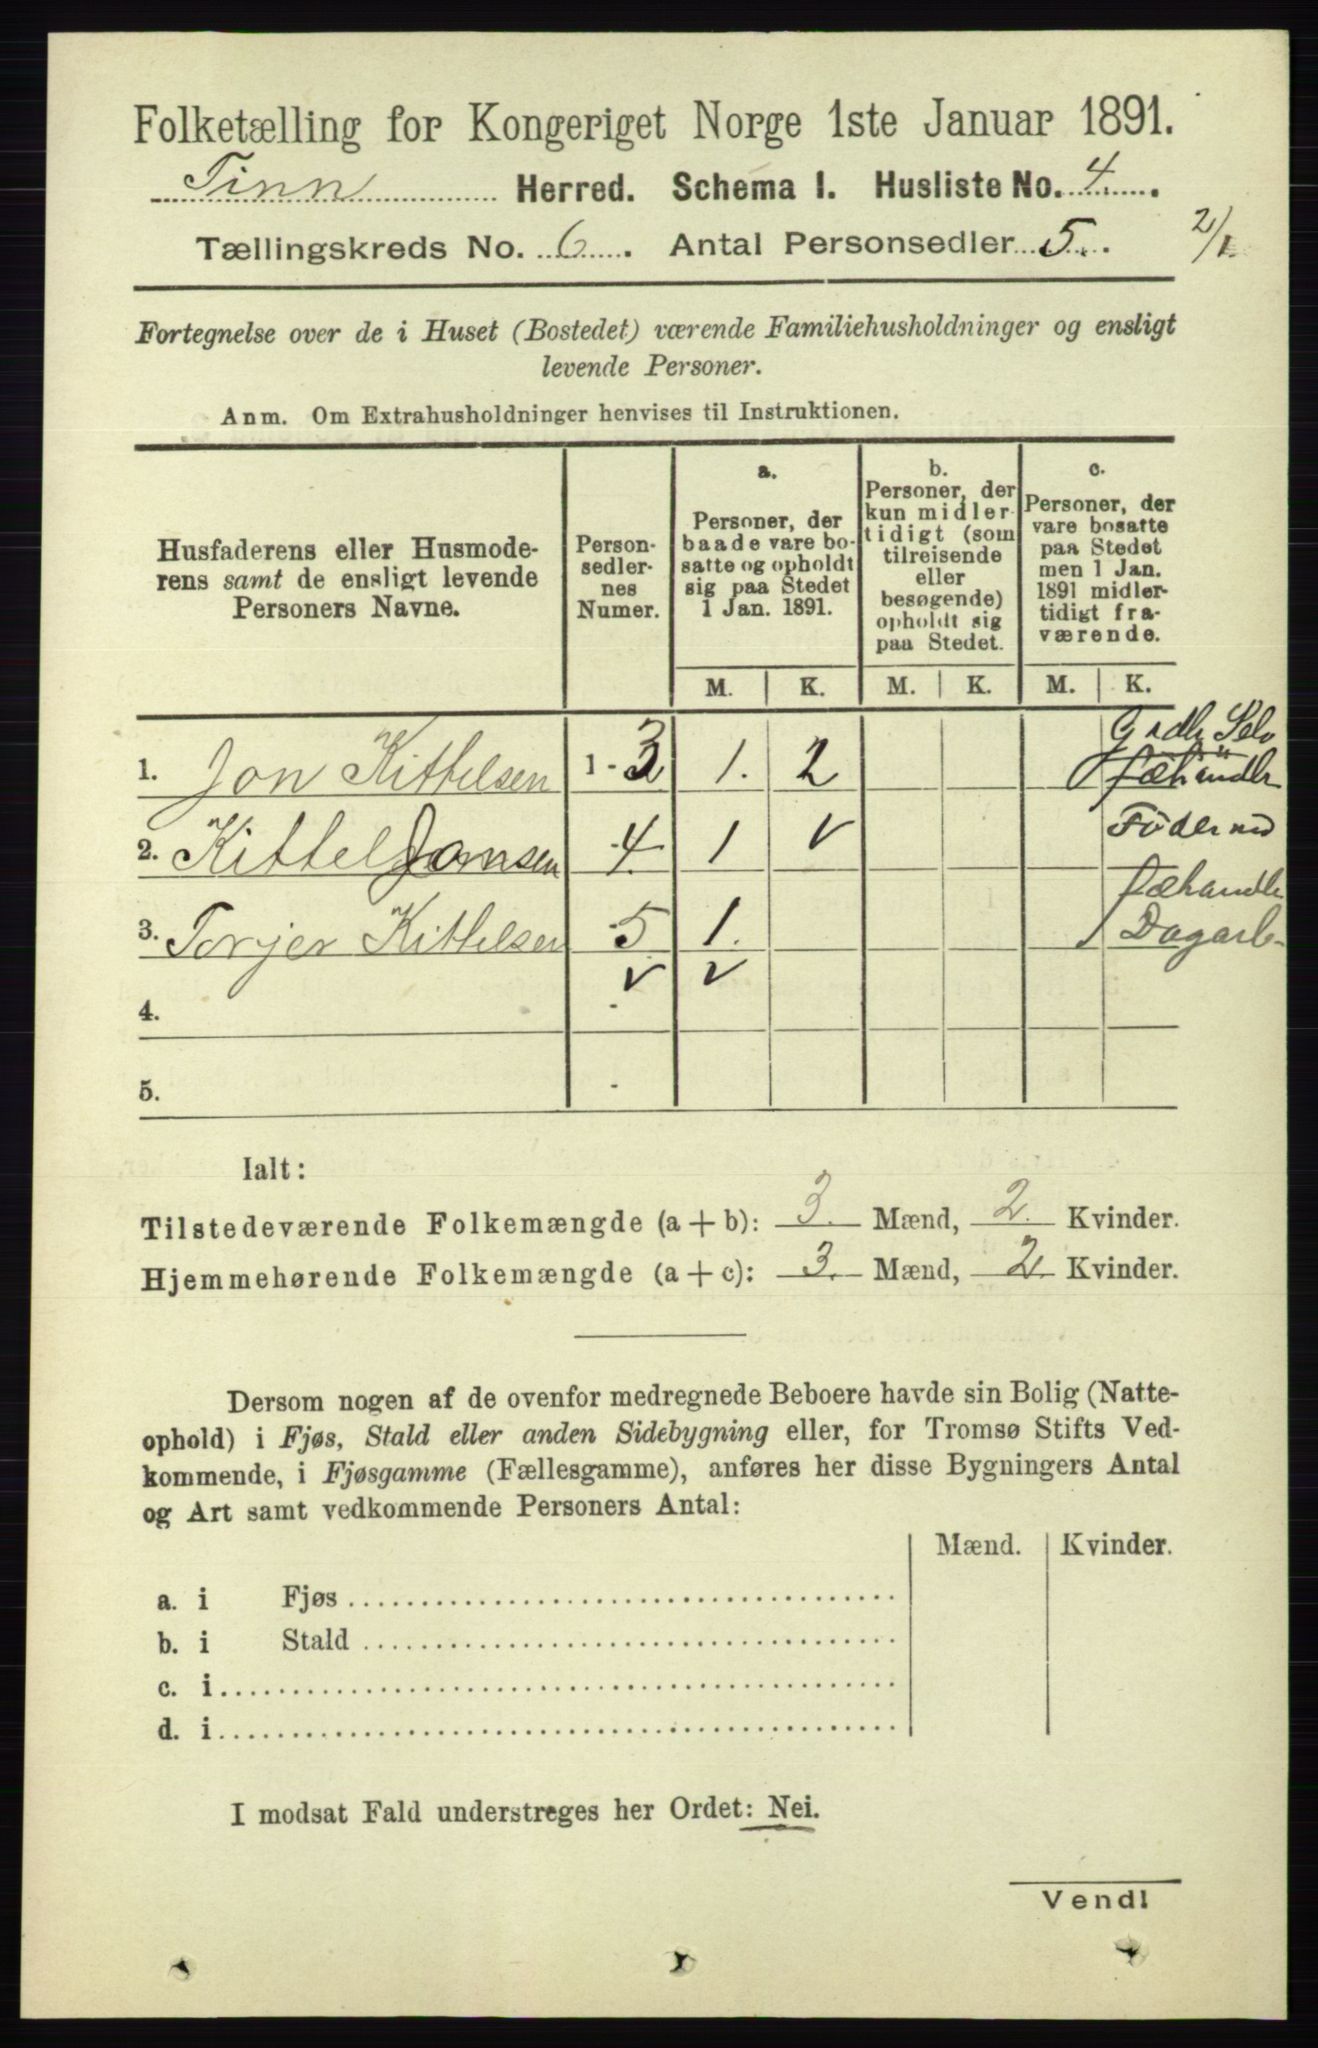 Folketælling for Kongeriget Norge 1ste Januar 1891.
Tinn Herred. Schema I. Husliste No. 4.
Tællingskreds No. 6. Antal Personsedler 5. 2/1
Fortegnelse over de i Huset (Bostedet) værende Familiehusholdninger og ensligt
levende Personer.
Anm. Om Extrahusholdninger henvises til Instruktionen.
Husfaderens eller Husmode-
rens samt de ensligt levende
Personers Navne.
Person-
sedler-
nes
Numer.
a.
Personer, der
baade vare bo-
satte og opholdt
sig paa Stedet
1 Jan. 1891.
b.
Personer, der
kun midler-
tidigt (som
tilreisende
eller
besøgende)
opholdt sig
paa Stedet.
c.
Personer, der
vare bosatte
paa Stedet
men 1 Jan.
1891 midler-
tidigt fra-
værende.
M. K. M. K. M. K.
Grdbr Selv
1. Jon Kittelsen 1-3 1. 2
fæhandler
2. Kittel Jonsen 4. 1 v
3. Torjer Kittelsen 5 1.
fæhandl
Dagarb
v v
4. -
5. -
Ialt:
Tilstedeværende Folkemængde (a + b): 3. Mænd, 2. Kvinder.
Hjemmehørende Folkemængde (a + c): 3. Mænd, 2. Kvinder.
Dersom nogen af de ovenfor medregnede Beboere havde sin Bolig (Natte-
ophold) i Fjøs, Stald eller anden Sidebygning eller, for Tromsø Stifts Ved-
kommende, i Fjøsgamme (Fællesgamme), anføres her disse Bygningers Antal
og Art samt vedkommende Personers Antal:
Mænd. Kvinder.
a. i Fjøs
b. i Stald
c. i
d. i
I modsat Fald understreges her Ordet: Nei.
Vend!